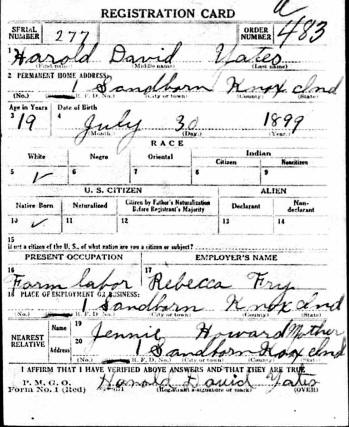 REGISTRATION CARD
SERIAL NUMBER 277 ORDER NUMBER 483
1 Harold David Yates
(First name) (Middle name) (Last name)
2 PERMANENT HOME ADDRESS:
1 Sandborn Knox Ind
(No.) (City or town) (County) (State)
Age in Years Date of Birth
3 19 4 July 30 1899
(Month.) (Day.) (Year.)
RACE
White Negro Oriental Indian
Citizen Noncitizen
5 ✓ 6 7 8 9
U. S. CITIZEN ALIEN
Native Born Naturalized Citizen by Father's Naturalization Before Registrant's Majority Declarant Non-declarant
10 ✓ 11 12 13 14
15
If not a citizen of the U. S., of what nation are you a citizen or subject?
PRESENT OCCUPATION EMPLOYER'S NAME
16 Farm labor 17 Rebecca Fry
18 PLACE OF EMPLOYMENT OR BUSINESS:
Sandborn Knox Ind
(No.) R. F. D. No.) (City or town) (County) (State)
NEAREST RELATIVE Name 19 Jennie Howard Mother
Address 20 1 Sandborn Knox Ind
(No.) R. F. D. No.) (City or town) (County) (State)
I AFFIRM THAT I HAVE VERIFIED ABOVE ANSWERS AND THAT THEY ARE TRUE
P. M. G. O.
Form No. 1 (Red) Harold David Yates
(Registrant's signature or mark) (OVER)